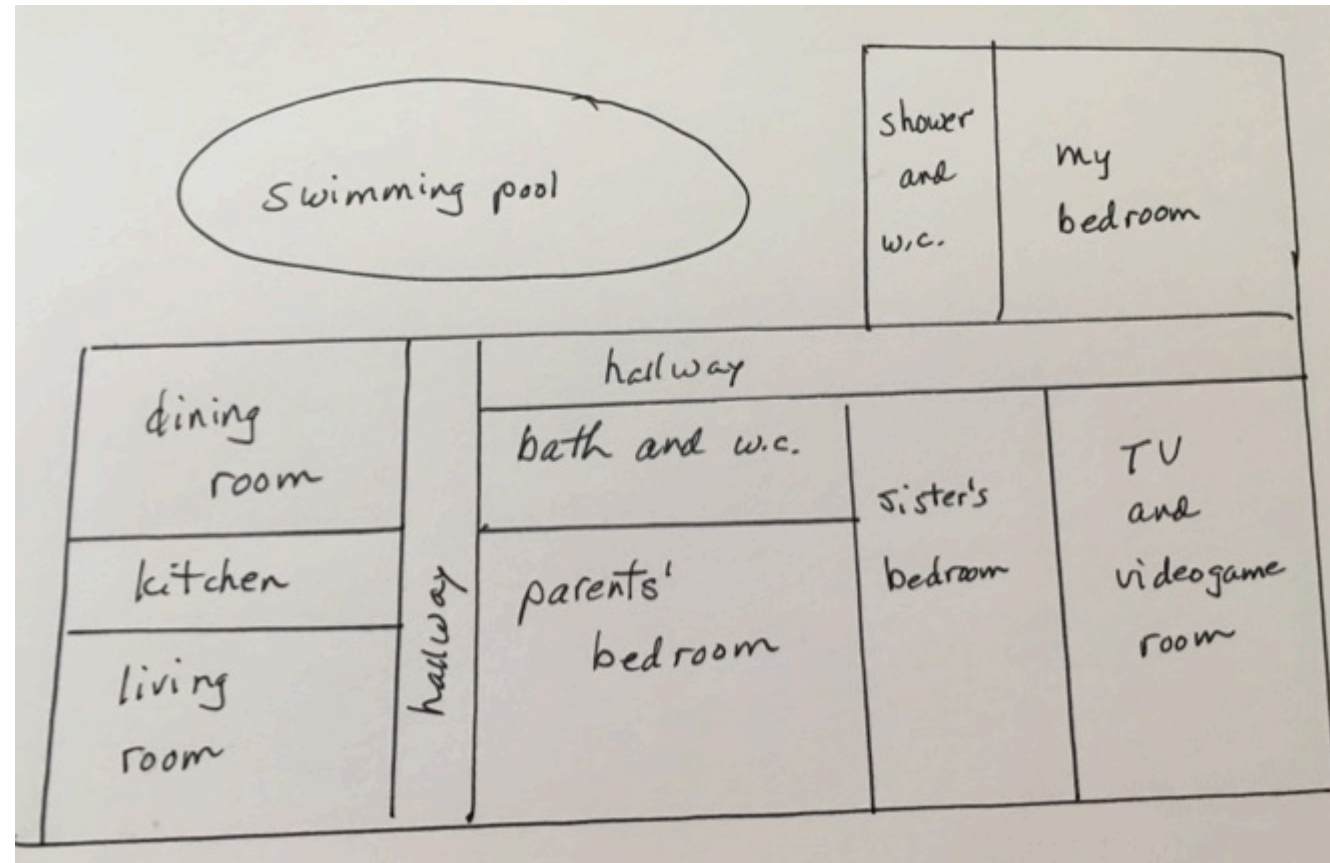 swimming pool
shower
and
w.c.
my
bedroom
dining
room
kitchen
living
room
hallway
hallway
bath and w.c.
parents'
bedroom
sister's
bedroom
TV
and
videogame
room